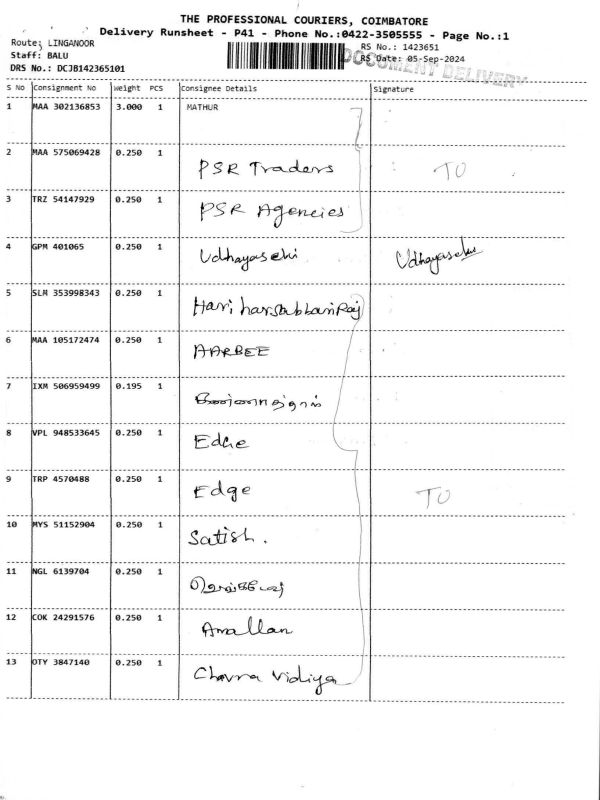 THE PROFESSIONAL COURIERS, COIMBATORE
Delivery Runsheet - P41 - Phone No.:0422-3505555 - Page No.:1
Route: LINGANOOR
RS No.: 1423651
Staff: BALU
RS Date: 05-Sep-2024
DOCUMENT DELIVERY
DRS No.: DCJB142365101
S No Consignment No Weight PCS Consignee Details Signature
1 MAA 302136853 3.000 1 MATHUR
2 MAA 575069428 0.250 1 PSR Traders TO
3 TRZ 54147929 0.250 1 PSR Agencies
4 GPM 401065 0.250 1 Udhayasehi
5 SLM 353998343 0.250 1
6 MAA 105172474 0.250 1 AARBEE
7 IXM 506959499 0.195 1
8 VPL 948533645 0.250 1 Edge
9 TRP 4570488 0.250 1 Edge TO
10 MYS 51152904 0.250 1 Satish.
11 NGL 6139704 0.250 1
12 COK 24291576 0.250 1 Amallan
13 OTY 3847140 0.250 1 Chavra Vidiya